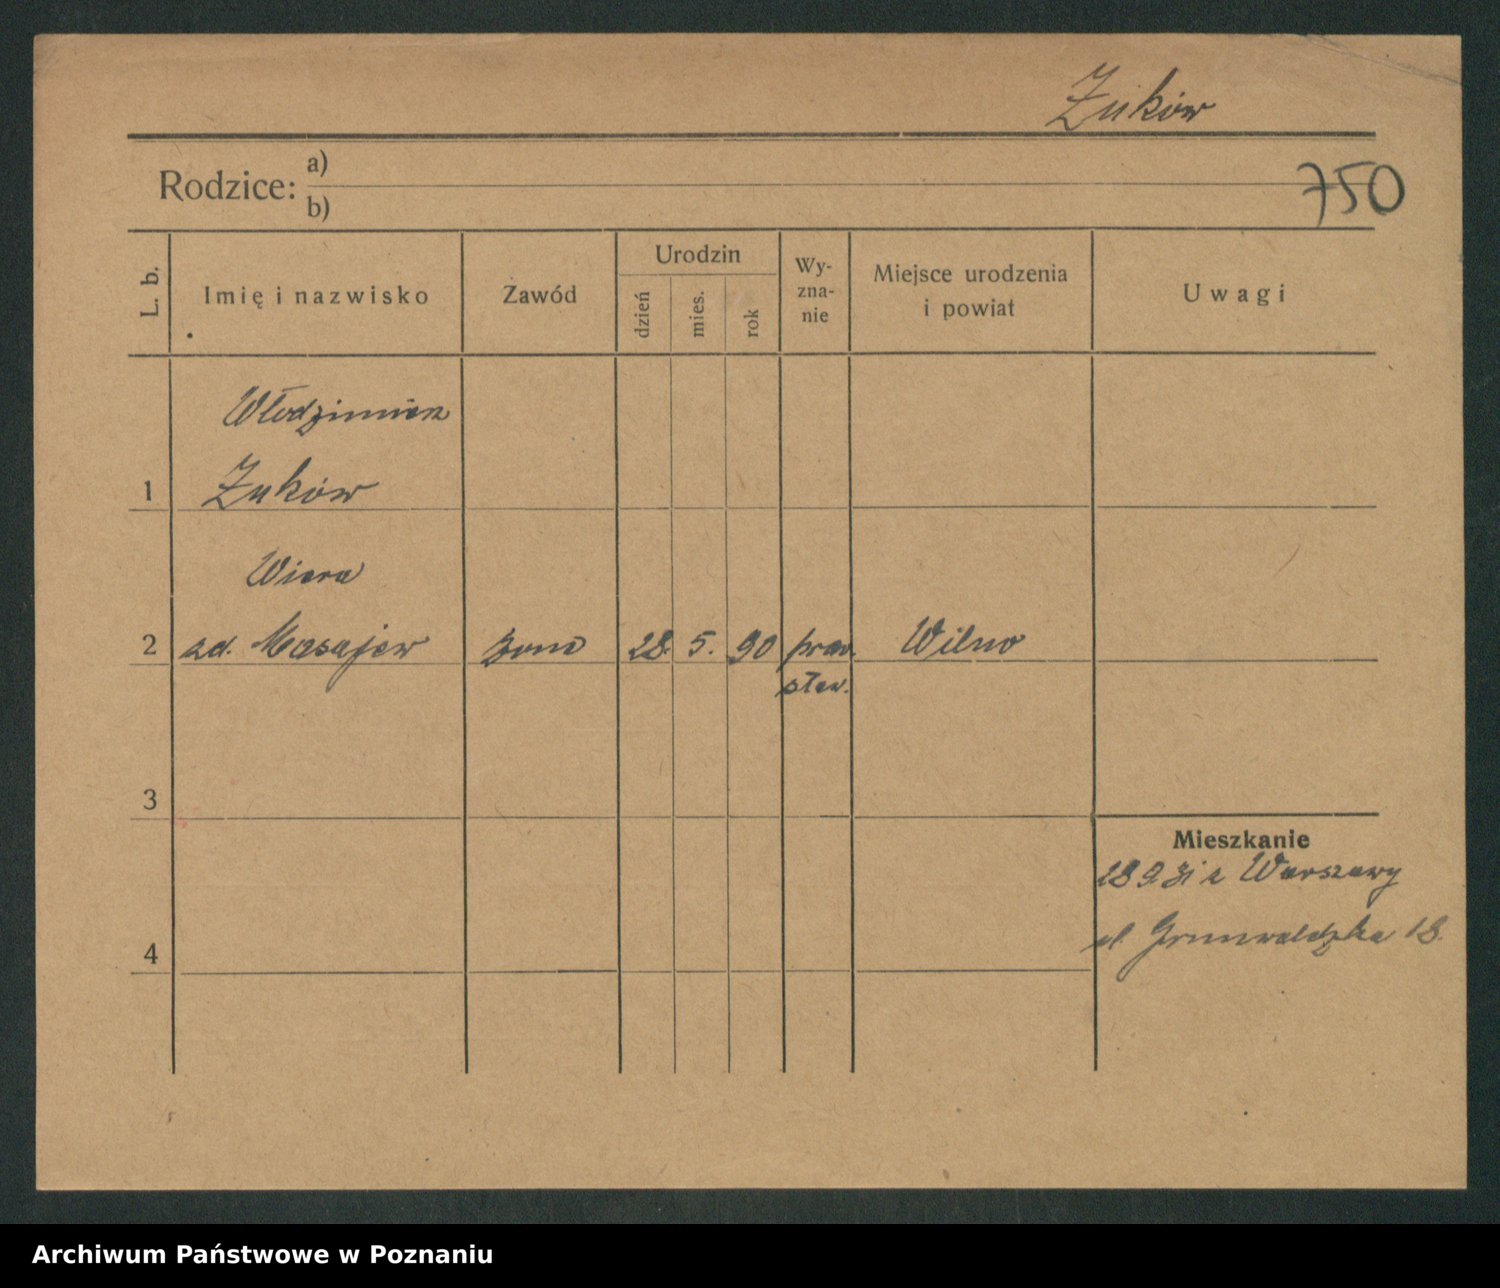 Żuków
Rodzice:
a)
b)
750
L. b.
Imię i nazwisko
Zawód
Urodzin
dzień
mies.
rok
Wy-
zna-
nie
Miejsce urodzenia
i powiat
Uwagi
Włodzimierz
1 Żuków
Wiera
2 zd. Masajew żona 28. 5. 90 praw. Wilno
sław.
3
Mieszkanie
28 9 31 z Warszawy
4 ul. Grunwaldzka 18.
Archiwum Państwowe w Poznaniu